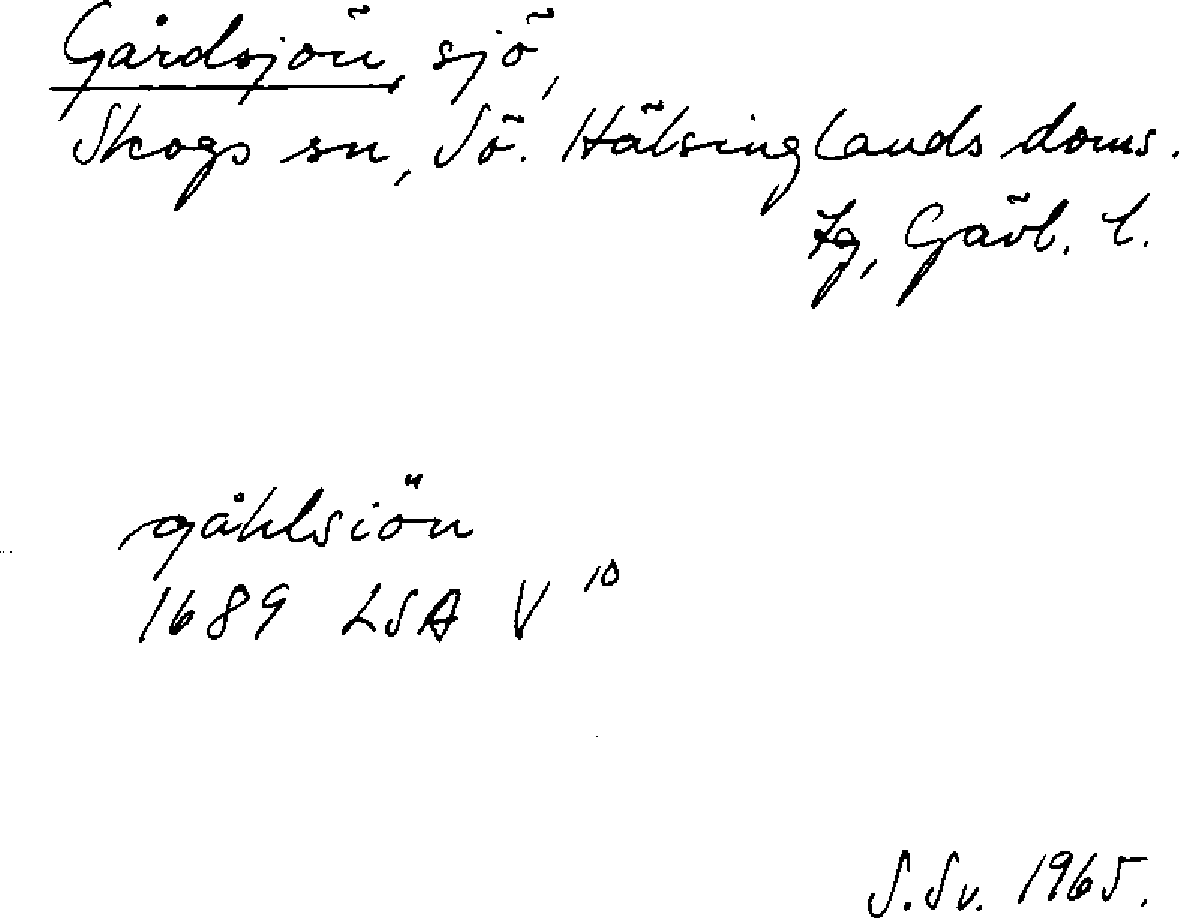 Gårdsjön, sjö,
Skogs sn, Sö. Hälsinglands doms.
tg, Gävl. l.
gåhlsiön
1689 LSA V 10
S. Sv. 1965.